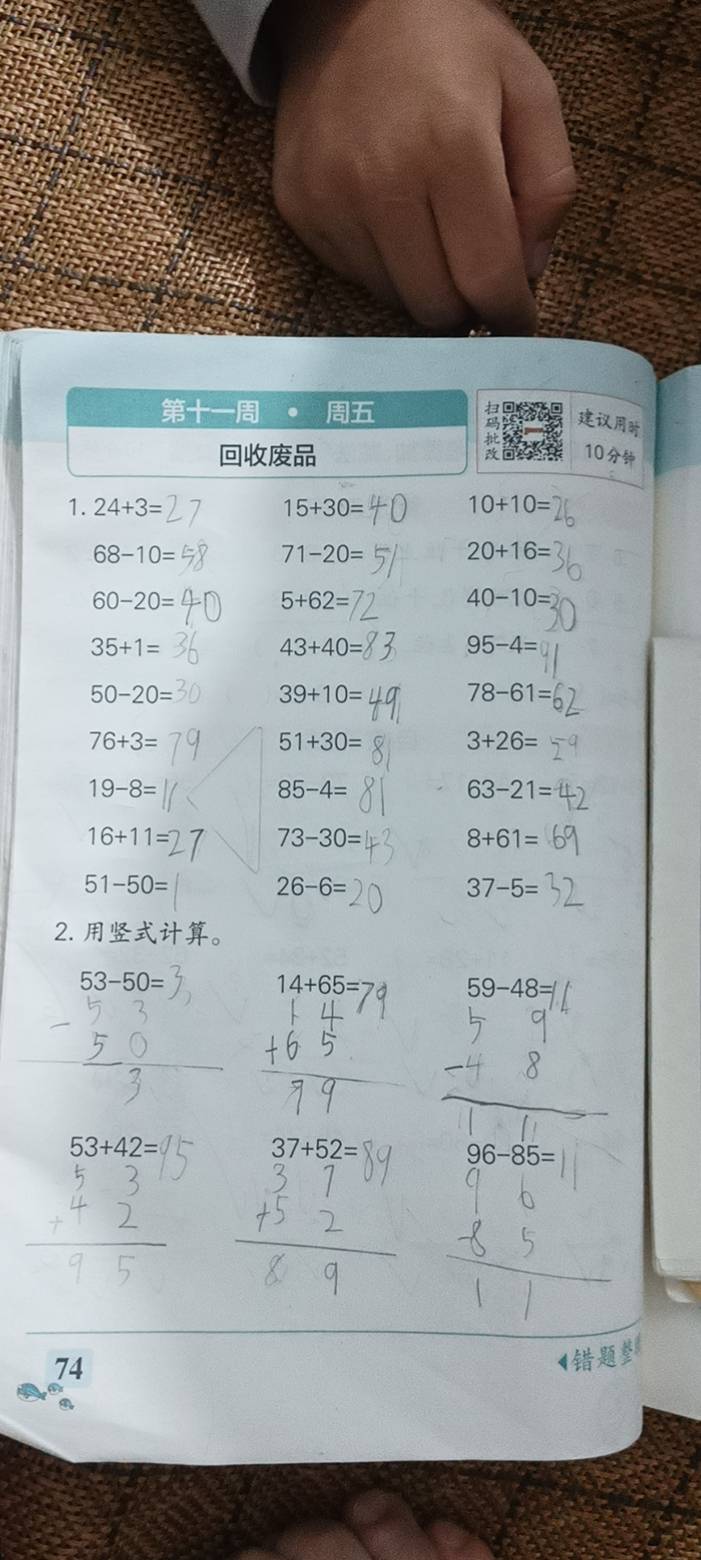 第十一周 • 周五
回收废品
扫码批改
建议用时
10分钟
1. 24+3=27 15+30=40 10+10=26
68-10=58 71-20=51 20+16=36
60-20=40 5+62=72 40-10=30
35+1=36 43+40=83 95-4=91
50-20=30 39+10=49 78-61=62
76+3=79 51+30=81 3+26=29
19-8=11 85-4=81 63-21=42
16+11=27 73-30=43 8+61=69
51-50=1 26-6=20 37-5=32
2. 用竖式计算。
53-50=3 14+65=79 59-48=11
5 3 1 4 5 9
- 5 0 +6 5 -4 8
3 7 9 1 1
53+42=95 37+52=89 96-85=11
5 3 3 7 9 6
+4 2 +5 2 -8 5
9 5 8 9 1 1
74
错题整